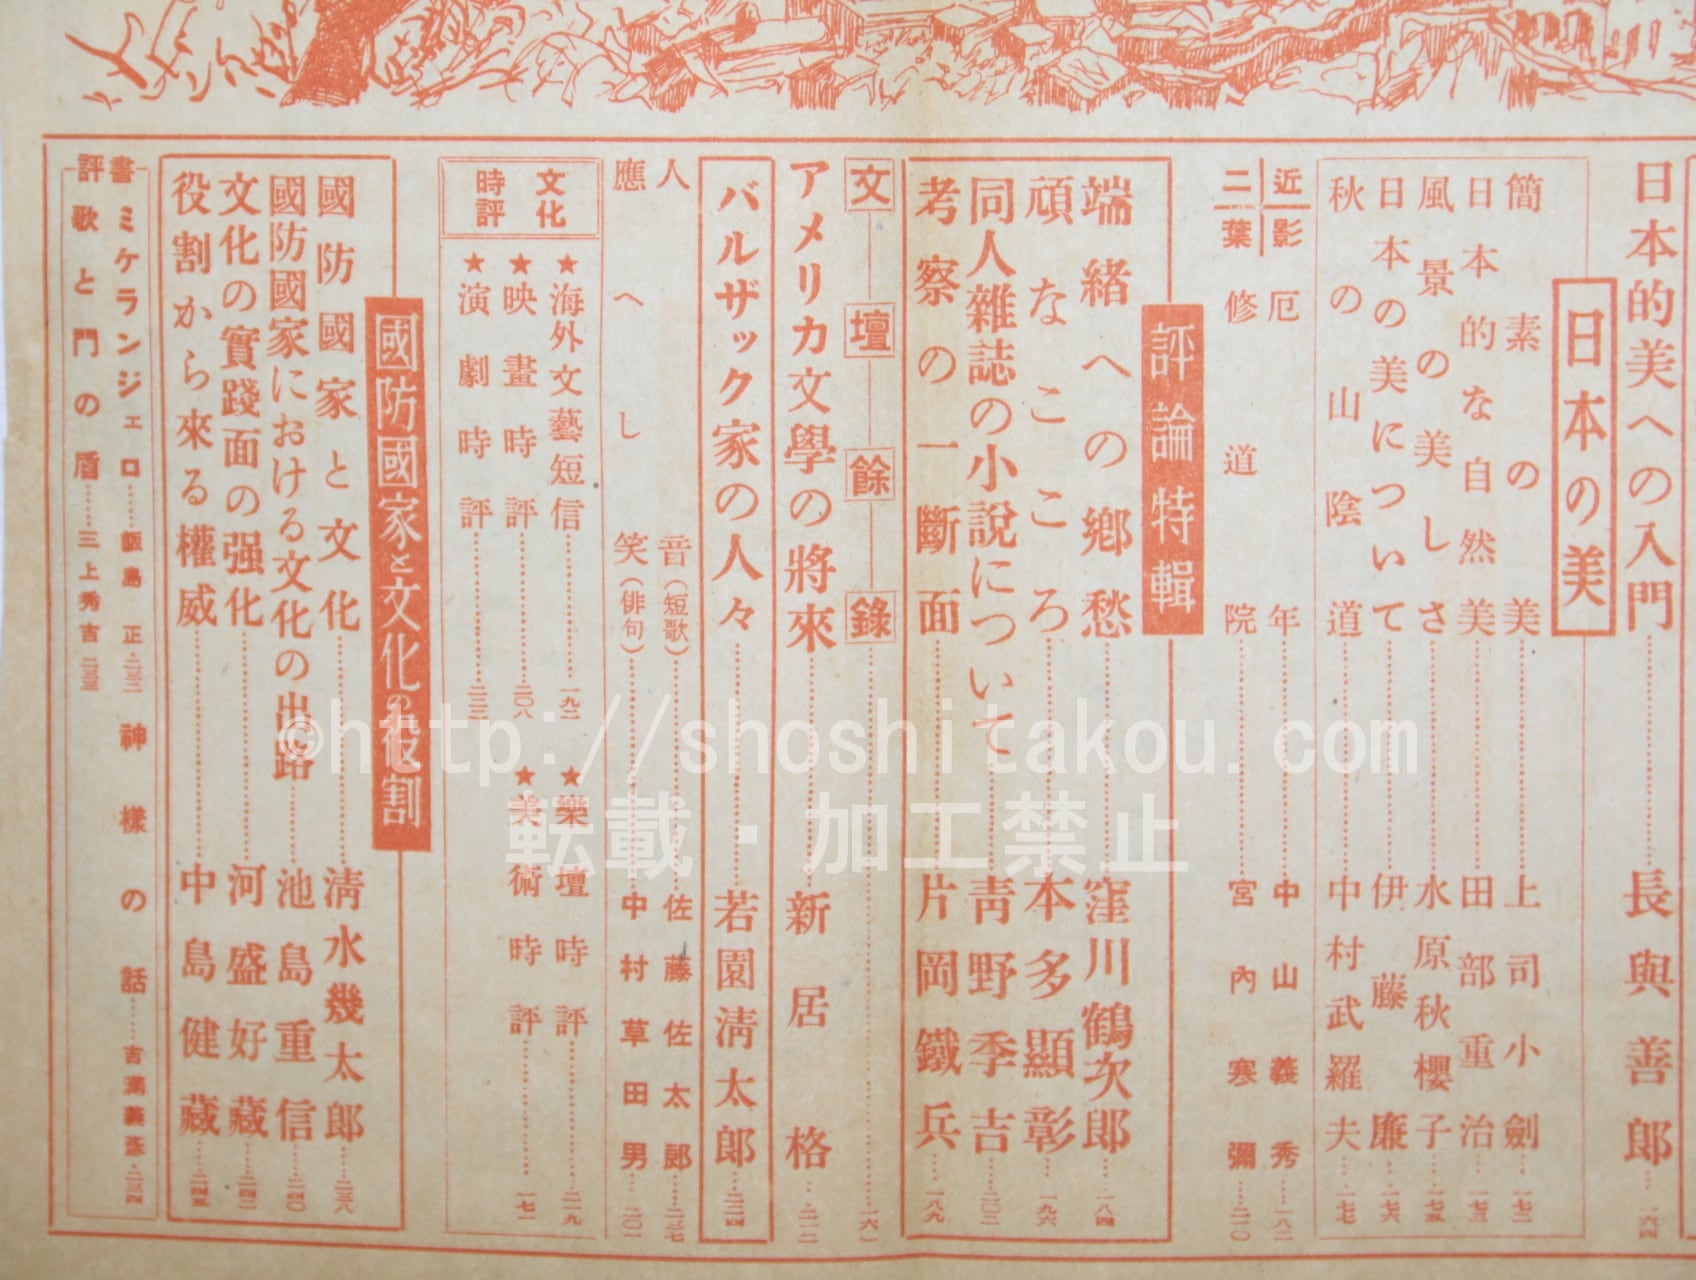 日本的美への入門……長與善郎……一六四
日本の美
簡素の美……上司小劍……一七二
日本的な自然美……田部重治……一七三
風景の美しさ……水原秋櫻子……一七五
日本の美について……伊藤廉……一七六
秋の山陰道……中村武羅夫……一七七
近影二葉
厄年……中山義秀……一八二
修道院……宮內寒彌……二一〇
評論特輯
端緒への鄕愁……窪川鶴次郎……一八四
頑なこころ……本多顯彰……一九六
同人雜誌の小說について……靑野季吉……二〇二
考察の一斷面……片岡鐵兵……一八九
文壇餘錄……一六一
アメリカ文學の將來……新居格……二一二
バルザック家の人々……若園淸太郎……二二四
人音(短歌)……佐藤佐太郎……二二七
應へし笑(俳句)……中村草田男……二〇一
文化時評
★海外文藝短信……一九二
★樂壇時評……二一九
★映畫時評……二〇八
★美術時評……一七一
★演劇時評……二二二
國防國家と文化の役割
國防國家と文化……淸水幾太郎……二三八
國防國家における文化の出路……池島重信……二四〇
文化の實踐面の强化……河盛好藏……二四二
役割から來る權威……中島健藏……二四五
書評
ミケランジェロ……飯島正
神樣の話……吉滿義彥……二三四
歌と門の盾……三上秀吉
©http://shoshitakou.com
転載・加工禁止